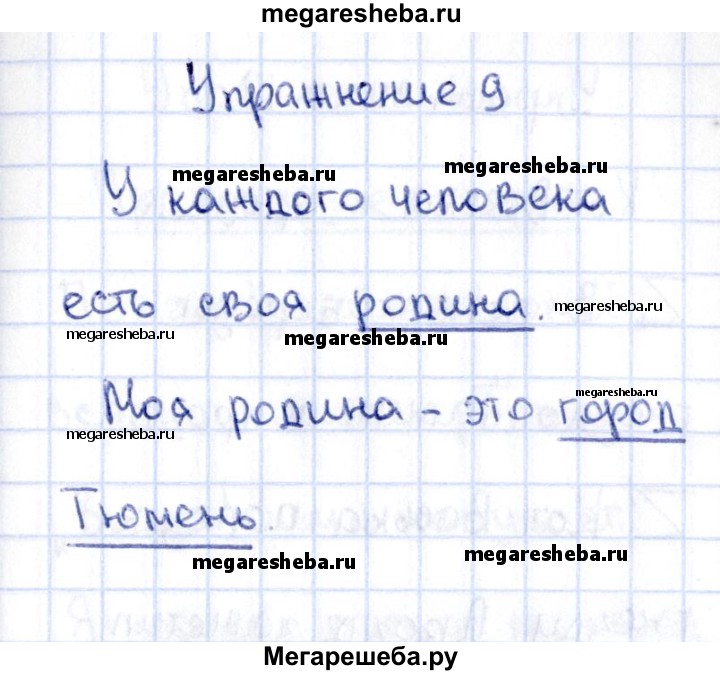 megaresheba.ru
Упражнение 9
megaresheba.ru megaresheba.ru
У каждого человека
есть своя родина.
megaresheba.ru
megaresheba.ru megaresheba.ru
megaresheba.ru
Моя родина – это город
megaresheba.ru
Тюмень.
megaresheba.ru megaresheba.ru
Мегарешеба.ру